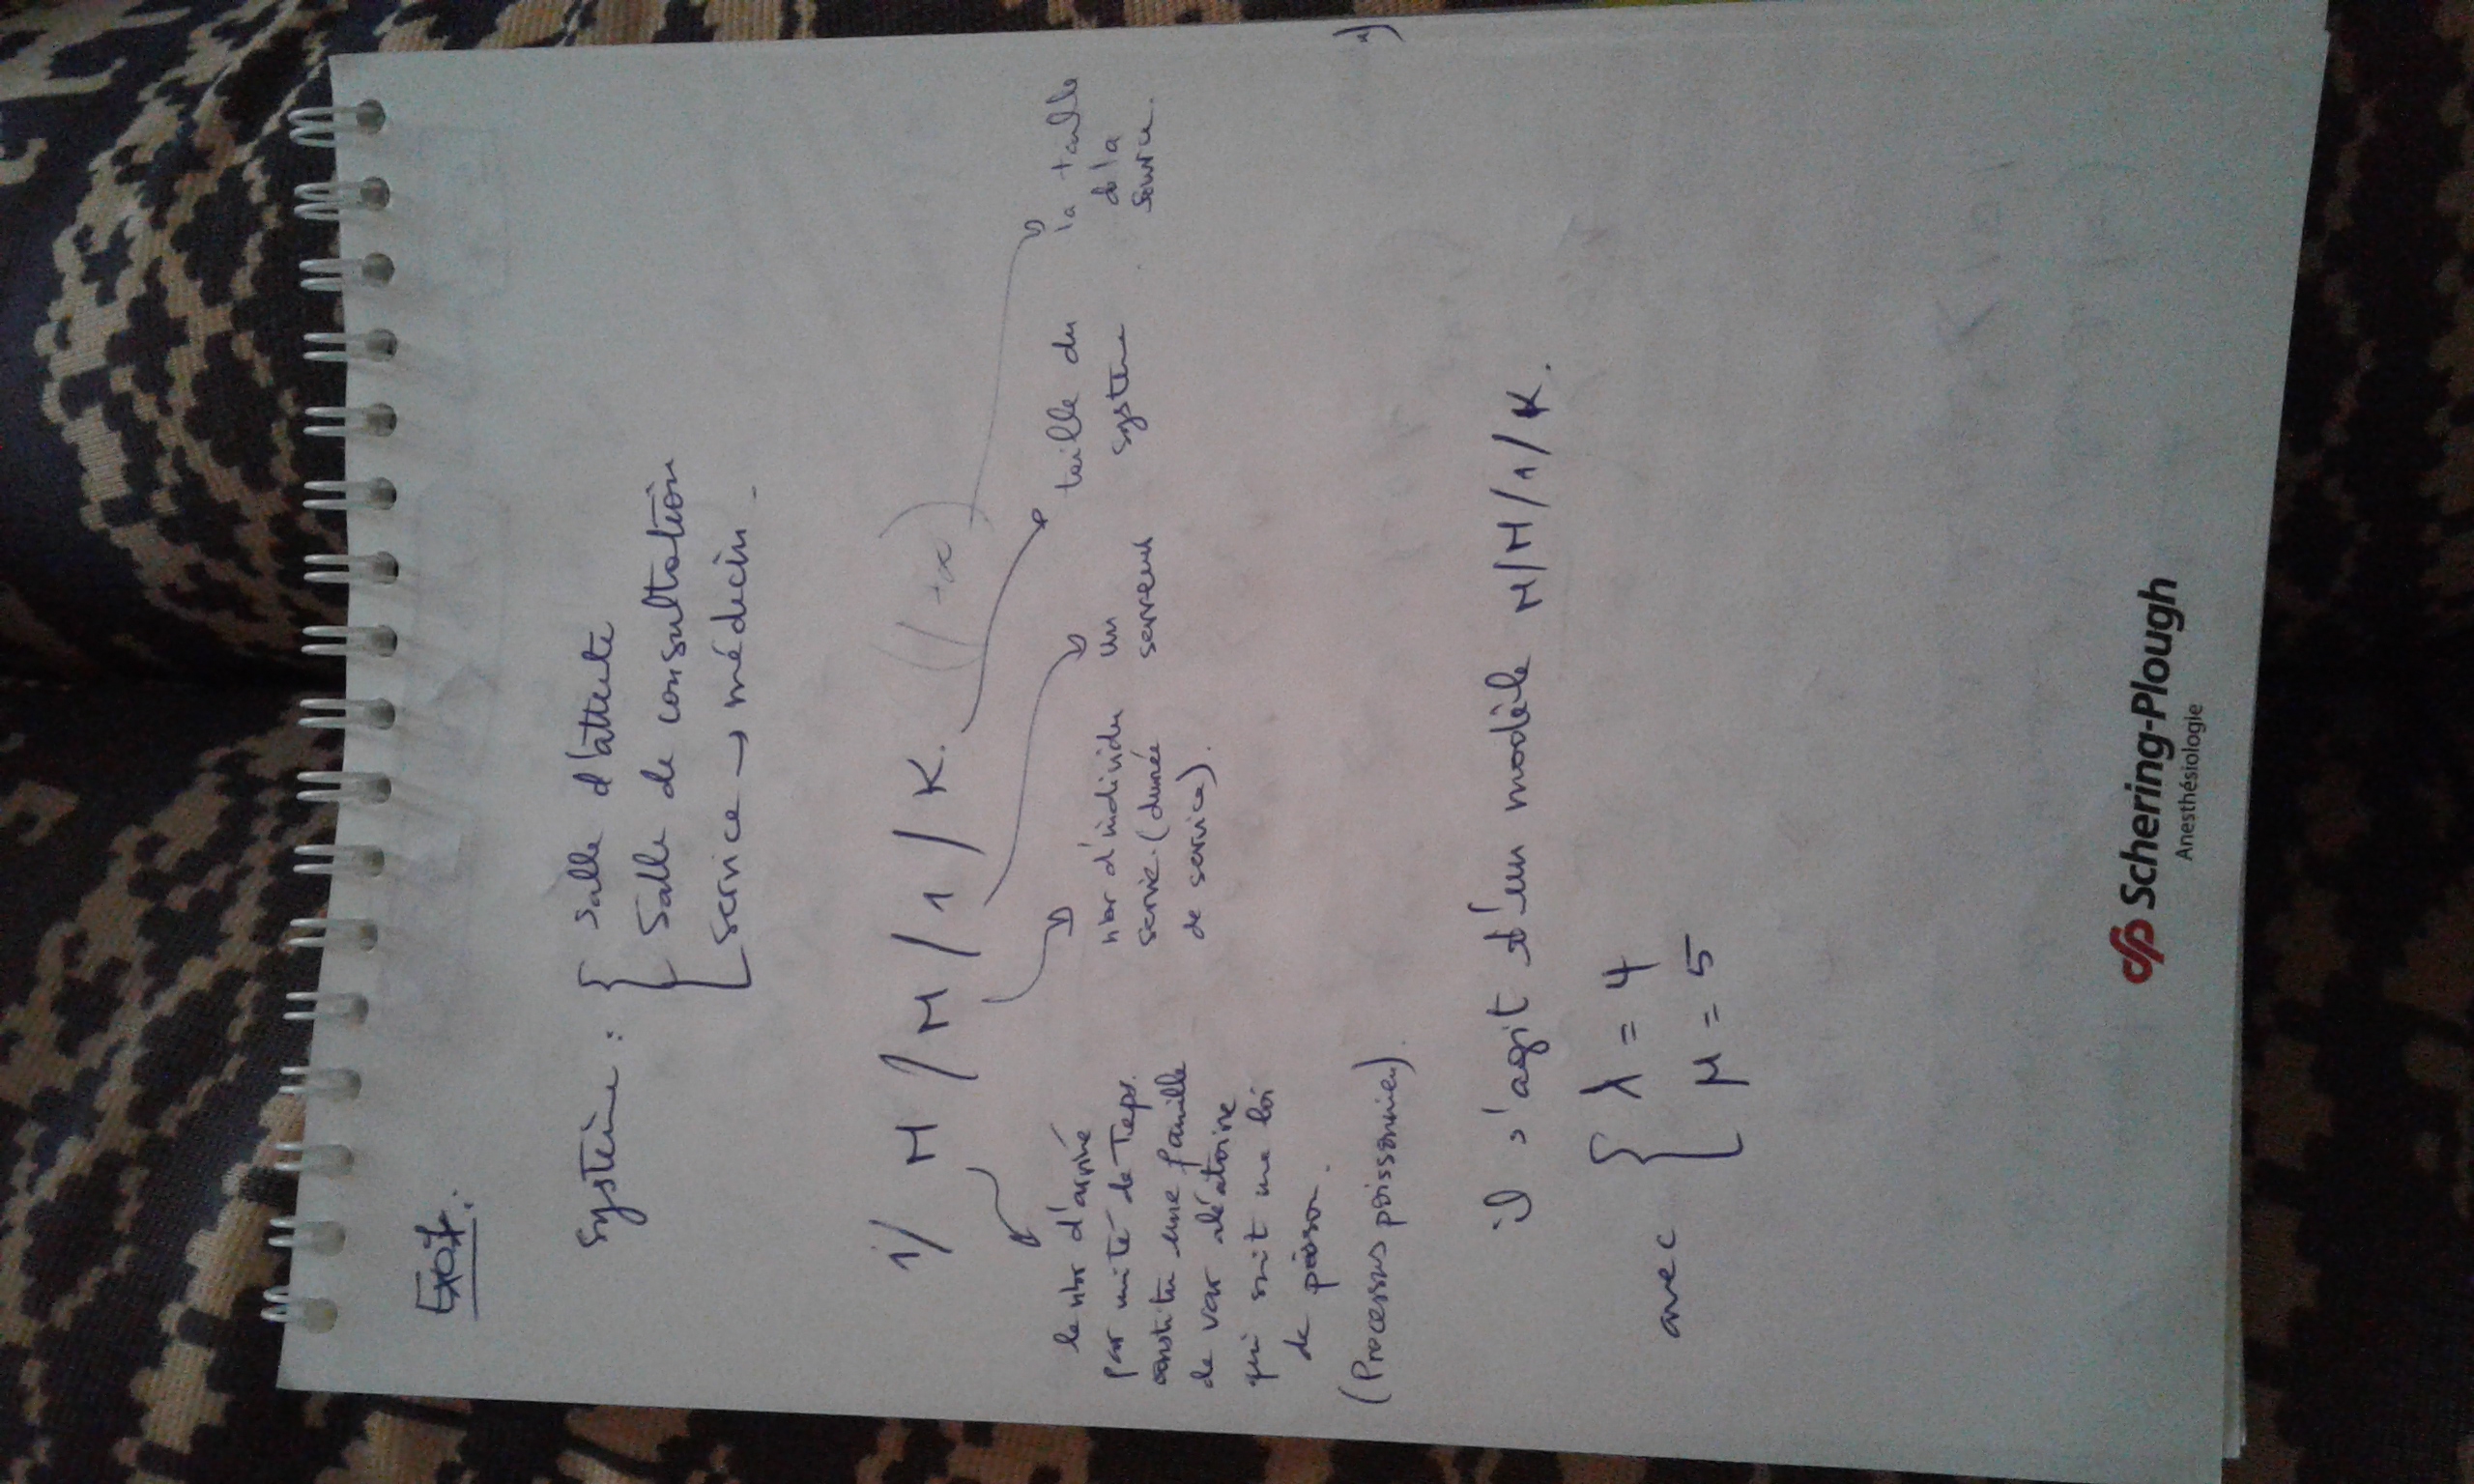 Exo1:
Système : { Salle d'attente
Salle de consultation
service → médecin.
1/ M / M / 1 / K. (/ +∞)
le nbr d'arrivé
par unité de Teps.
constitu une famille
de var aléatoire
qui suit une loi
de poisson.
(Processus poissonnien).
nbr d'individu
servie. (durée
de service).
un
serveur
taille du
système
la taille
d la
source.
il s'agit d'un modèle M/M/1/K.
avec { λ = 4
μ = 5
Schering-Plough
Anesthésiologie